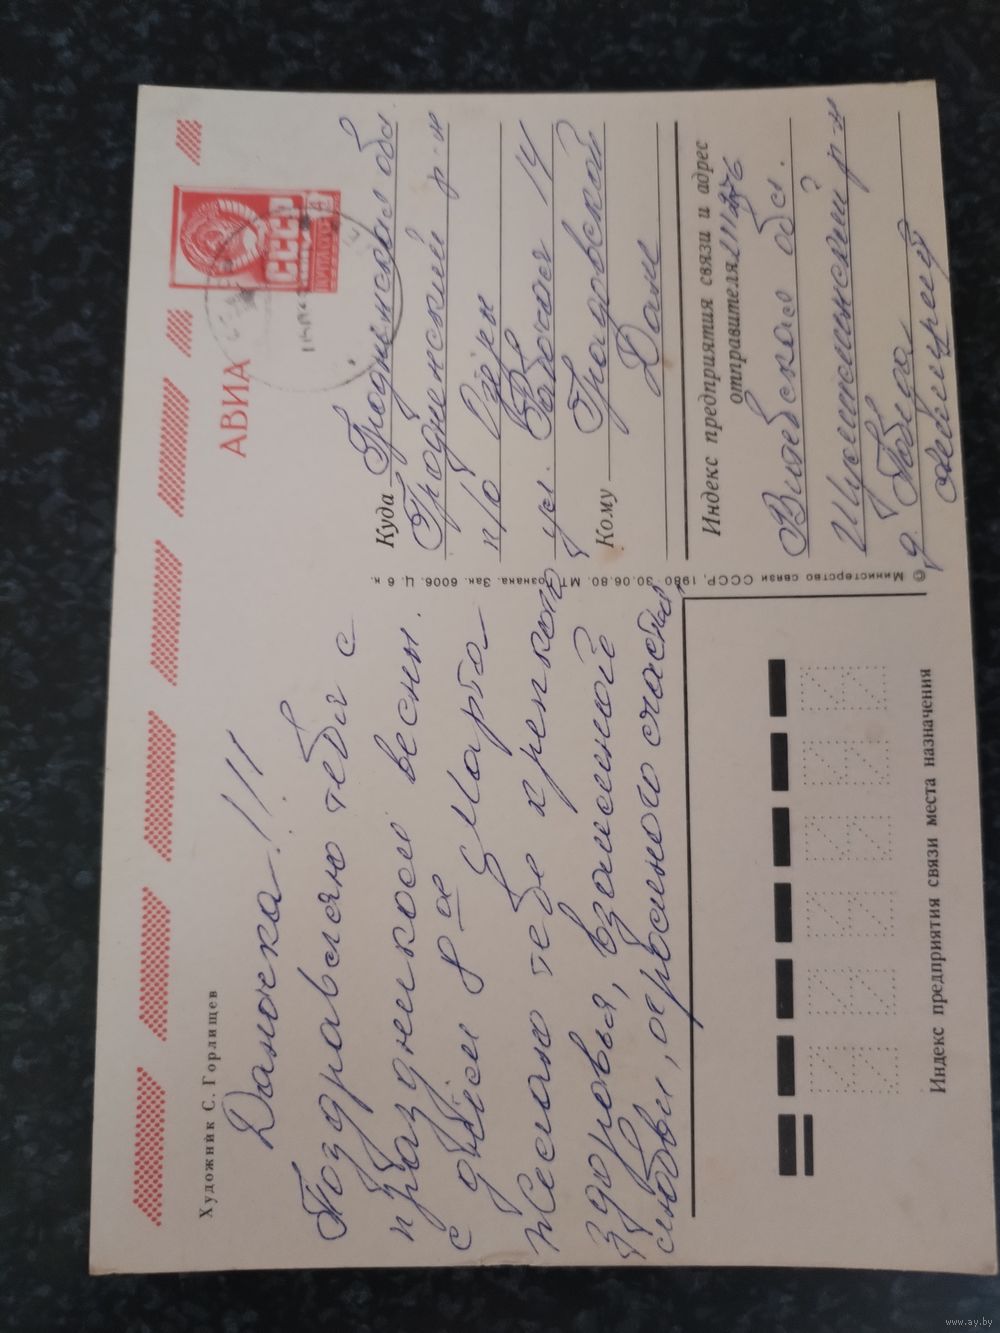 Художник С. Горлищев
АВИА
СССР
ПОЧТА
Даночка!!!
Поздравляю тебя с
праздником весны.
с днём 8-е Марта
Желаю тебе крепкого
здоровья, взаимной
любви, огромного счастья
Куда Гродненская обл
Гродненский р-н
п/о Озёры
ул. Рабочая 14
Кому
Дане
Индекс предприятия связи и адрес
отправителя
Витебская обл.
Шумилинский р-н
д.
© Министерство связи СССР, 1980 30.06.80. МТ Гознака. Зак. 6006. Ц. 6 к.
Индекс предприятия связи места назначения
www.ay.by